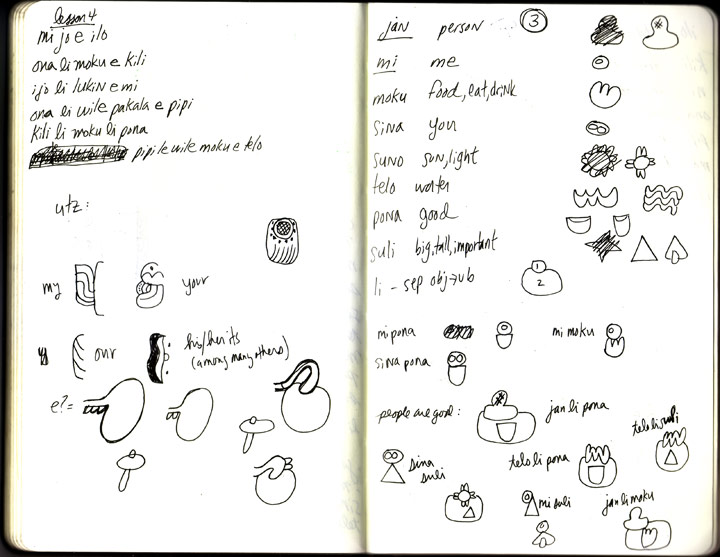 lesson 4
mi jo e ilo
ona li moku e kili
ijo li lukin e mi
ona li wile pakala e pipi
kili li moku li pona
pipi le wile moku e telo
utz:
my
your
our
his/her its
(among many others)
e? =
jan person 3
mi me
moku food, eat, drink
sina you
suno sun, light
telo water
pona good
suli big, tall, important
li - sep obj→ub
1
2
mi pona
mi moku
sina pona
people are good:
jan li pona
telo li suli
sina
suli
telo li pona
mi suli
jan li moku